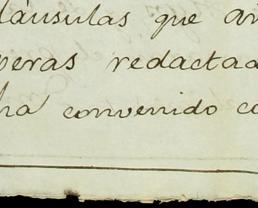 cláusulas que an
peras redactad
ha convenido co